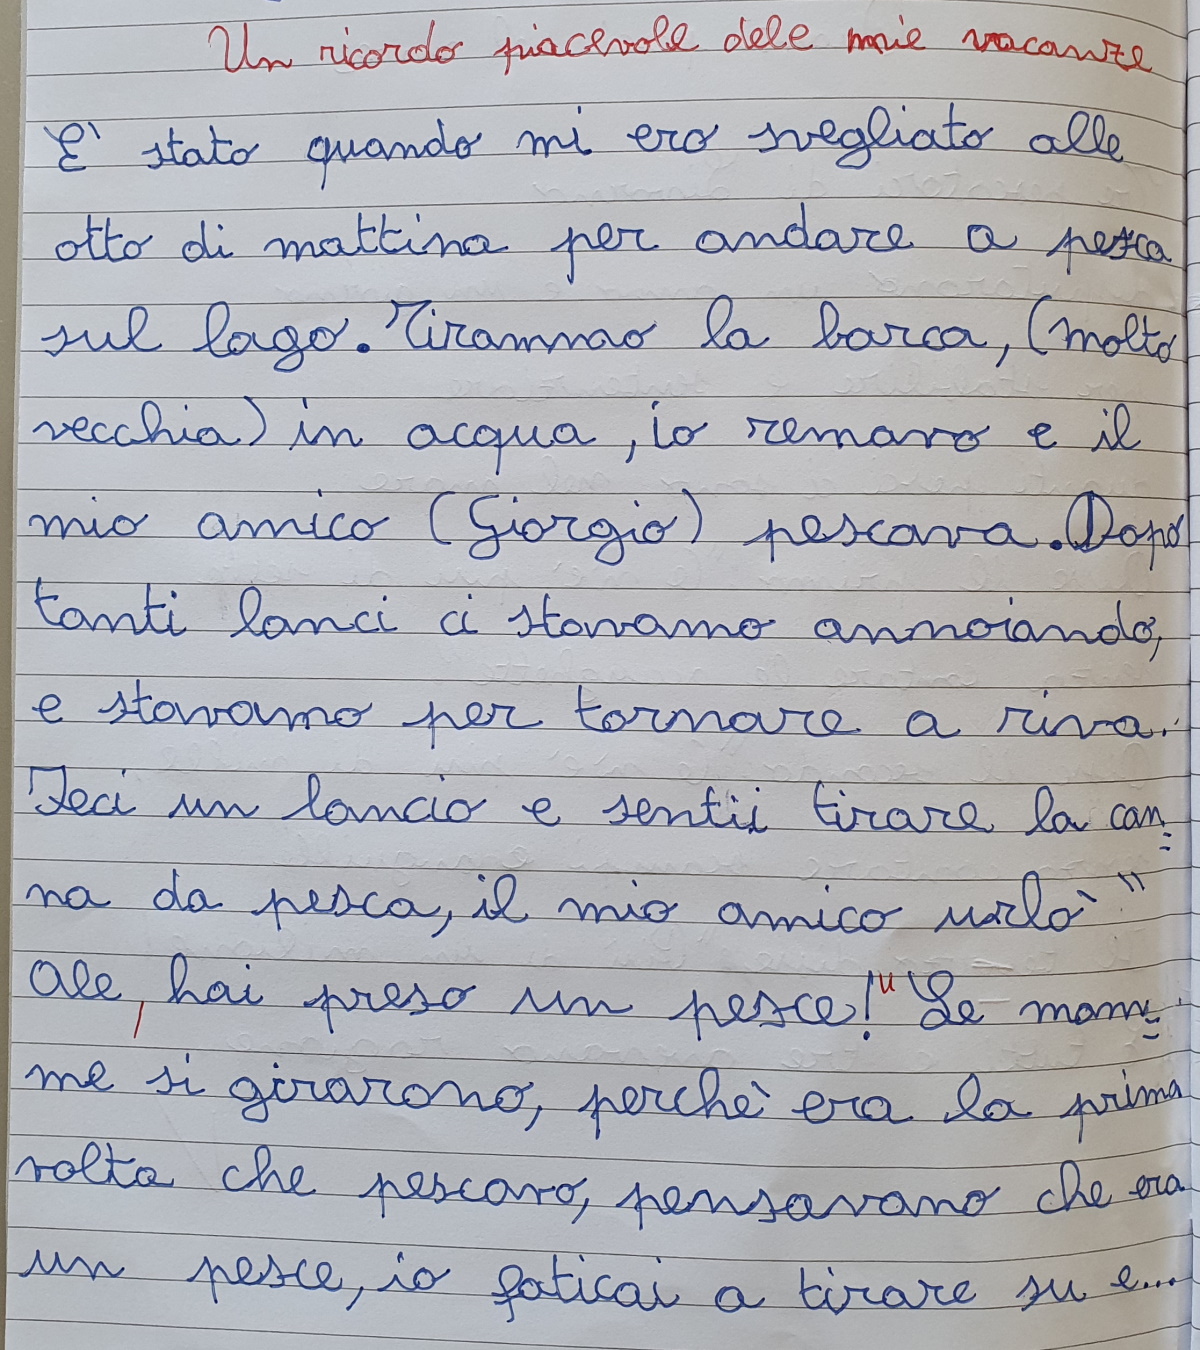 Un ricordo piacevole dele mie vacanze
E' stato quando mi ero svegliato alle
otto di mattina per andare a pesca
sul lago. Tirammao la barca, (molto
vecchia) in acqua, io remavo e il
mio amico (Giorgio) pescava. Dopo
tanti lanci ci stavamo annoiando,
e stavamo per tornare a riva.
Feci un lancio e sentii tirare la can=
na da pesca, il mio amico urlò "
Ale, hai preso un pesce!" Le mam=
me si girarono, perchè era la prima
volta che pescavo, pensavano che era
un pesce, io faticai a tirare su e...